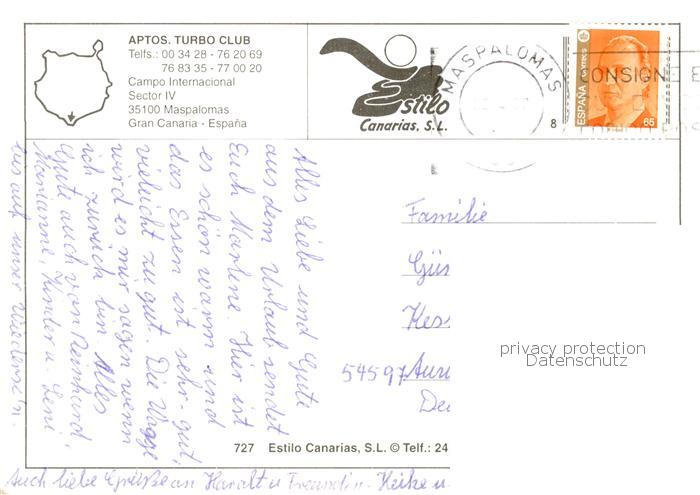 APTOS. TURBO CLUB
Telfs.: 00 34 28 - 76 20 69
76 83 35 - 77 00 20
Campo Internacional
Sector IV
35100 Maspalomas
Gran Canaria - España
Estilo
Canarias, S.L.
MASPALOMAS
8
CONSIGNE E
ESPAÑA
correos
65
Alles Liebe und Gute
aus dem Urlaub sendet
Euch Marlene. Hier ist
es schön warm und
das Essen ist sehr gut,
vieleicht zu gut. Die Waage
wird es mir sagen wenn
ich zurück bin. Alles
Gute auch von Reinhard,
Marianne, Kinder u. Leni
bis auf unser Wiedersehn.
Auch liebe Grüße an Haralt u Freundin. Heike u
Familie
Gün
Kes
54597 Auw
De
privacy protection
Datenschutz
727 Estilo Canarias, S.L. © Telf.: 24